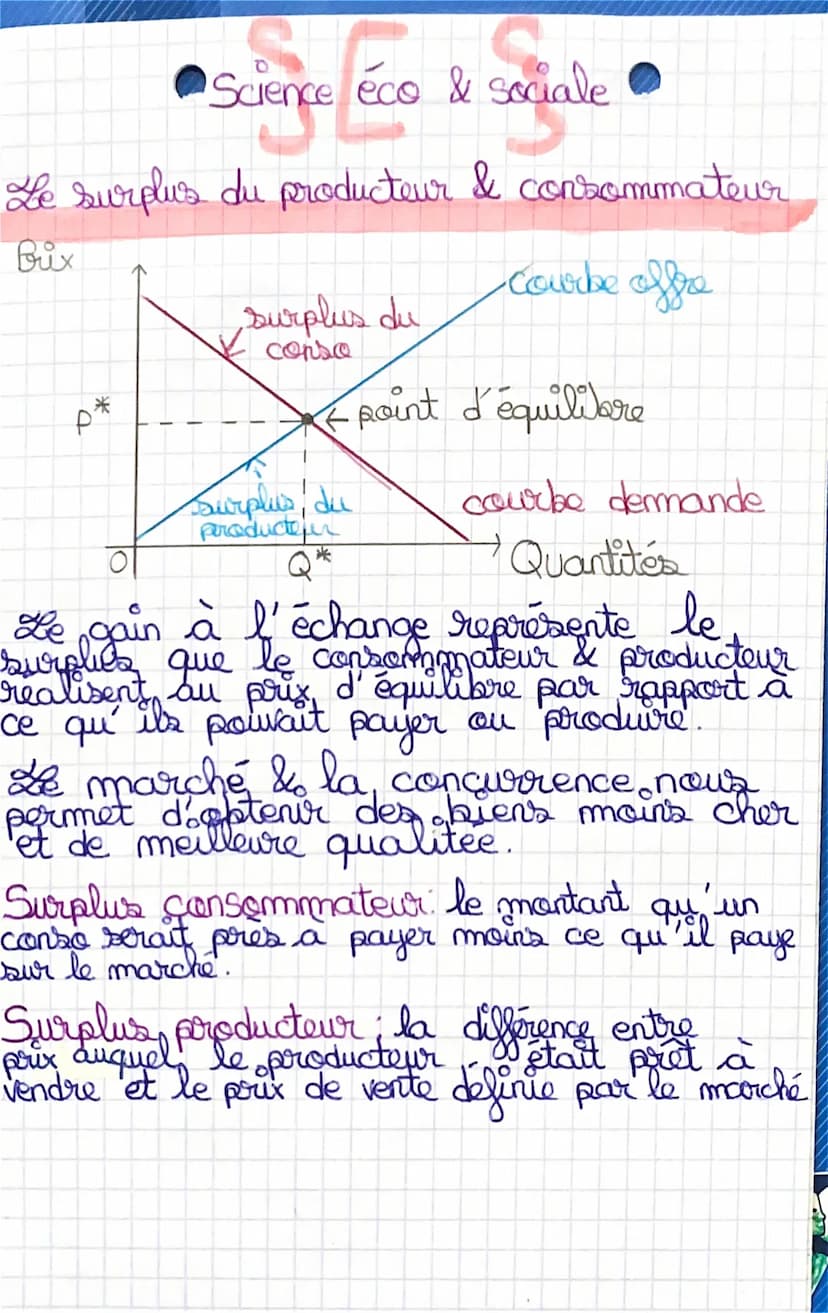 SES
Science éco & sociale
Le surplus du producteur & consommateur
Prix
courbe offre
surplus du
conso
P*
point d'équilibre
surplus du
producteur
courbe demande
O
Q*
Quantités
Le gain à l'échange représente le
surplus que le consommateur & producteur
réalisent au prix d'équilibre par rapport à
ce qu'ils pouvait payer ou produire.
Le marché & la concurrence nous
permet d'obtenir des biens moins cher
et de meilleure qualitée.
Surplus consommateur: le montant qu'un
conso serait pres a payer moins ce qu'il paye
sur le marché.
Surplus producteur : la différence entre
prix auquel le producteur était prêt à
vendre et le prix de vente définie par le marché